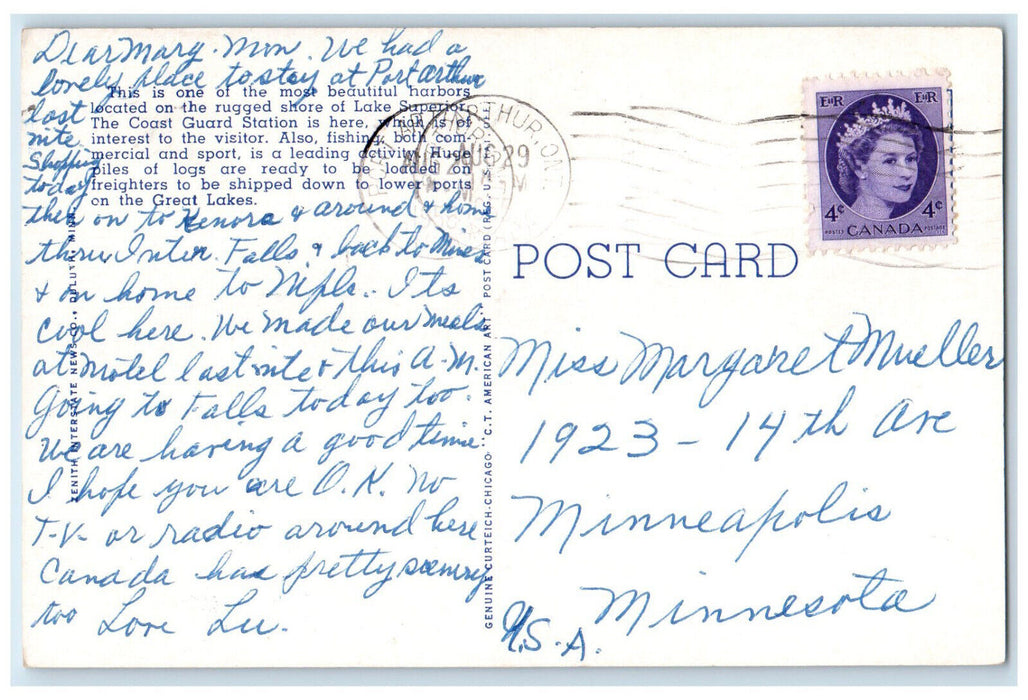 Dear Mary. Mon. We had a
lovely place to stay at Port Arthur
last
nite
Shopping
today
then on to Kenora & around & home
thru Inter. Falls, & back to Minn
& on home to Mpls.. Its
cool here. We made our meals
at motel last nite & this A.M.
Going to Falls today too.
We are having a good time
I hope you are O.K. No
T-V- or radio around here
Canada has pretty scenery
too Love Lu.
This is one of the most beautiful harbors
located on the rugged shore of Lake Superior.
The Coast Guard Station is here, which is of
interest to the visitor. Also, fishing, both com-
mercial and sport, is a leading activity. Huge
piles of logs are ready to be loaded on
freighters to be shipped down to lower ports
on the Great Lakes.
ZENITH INTERSTATE NEWS CO., DULUTH, MINN.
GENUINE CURTEICH-CHICAGO "C.T. AMERICAN ART" POST CARD (REG. U.S.
PORT ARTHUR, ONT.
AUG 29
POST CARD
EIIR EIIR
4¢ 4¢
POSTES CANADA POSTAGE
Miss Margaret Mueller
1923 - 14th Ave
Minneapolis
Minnesota
U.S.A.